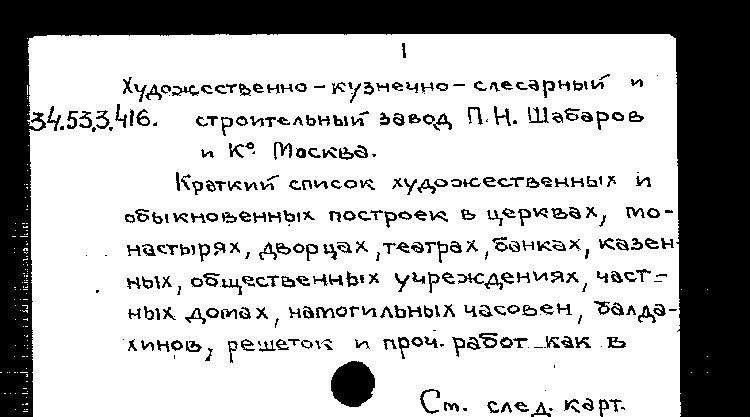 1
Художественно-кузнечно-слесарный и
34.53,3.416. строительный завод П.Н. Шабаров
и К° Москва.
Краткий список художественных и
обыкновенных построек в церквах, мо-
настырях, дворцах, театрах, банках, казен-
ных, общественных учреждениях, част-
ных домах, намогильных часовен, балда-
хинов, решеток и проч. работ как в
См. след. карт.